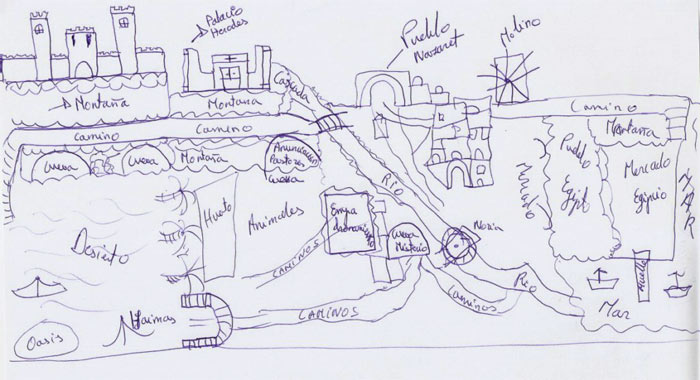 Palacio
Herodes
Pueblo
Nazaret
Molino
Montaña
Montaña
Cascada
Camino
Camino
Camino
Montaña
Cueva
Cueva
Montaña
Anunciacion
Pastores
Cueva
RIO
Pueblo
Egipt
Mercado
Egipcio
MAR
Huerto
Animales
Cueva
Misterio
Noria
Desierto
CAMINOS
Muelle
Rio
Caminos
Mar
Haimas
CAMINOS
Oasis